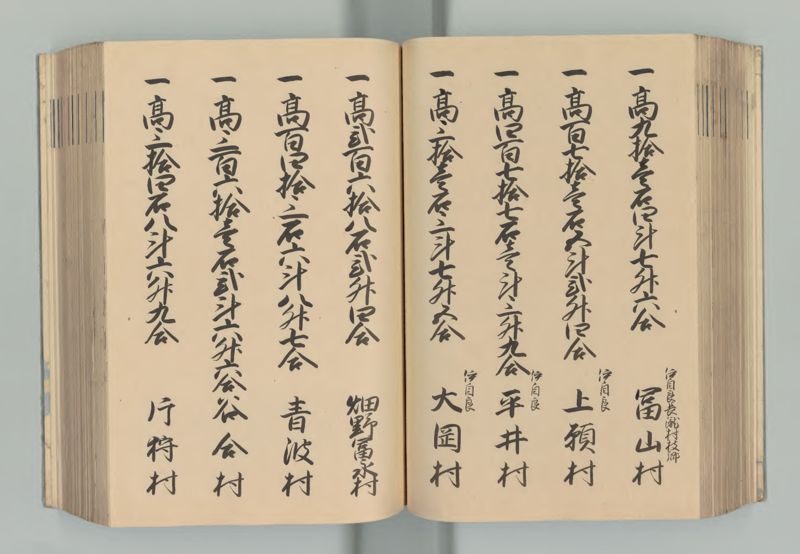 一高九拾壱石四斗七升六合
伊自良長瀧村枝郷
冨山村
一高百七拾壱石五斗弐升四合
伊自良
上願村
一高四百七拾七石壱斗三升九合
伊自良
平井村
一高三拾壱石三斗七升五合
伊自良
大岡村
一高弐百六拾八石弐升四合
畑野冨永村
一高百四拾三石六斗八升七合
青波村
一高三百六拾壱石弐斗六升六合
谷合村
一高三拾四石八斗六升九合
片狩村